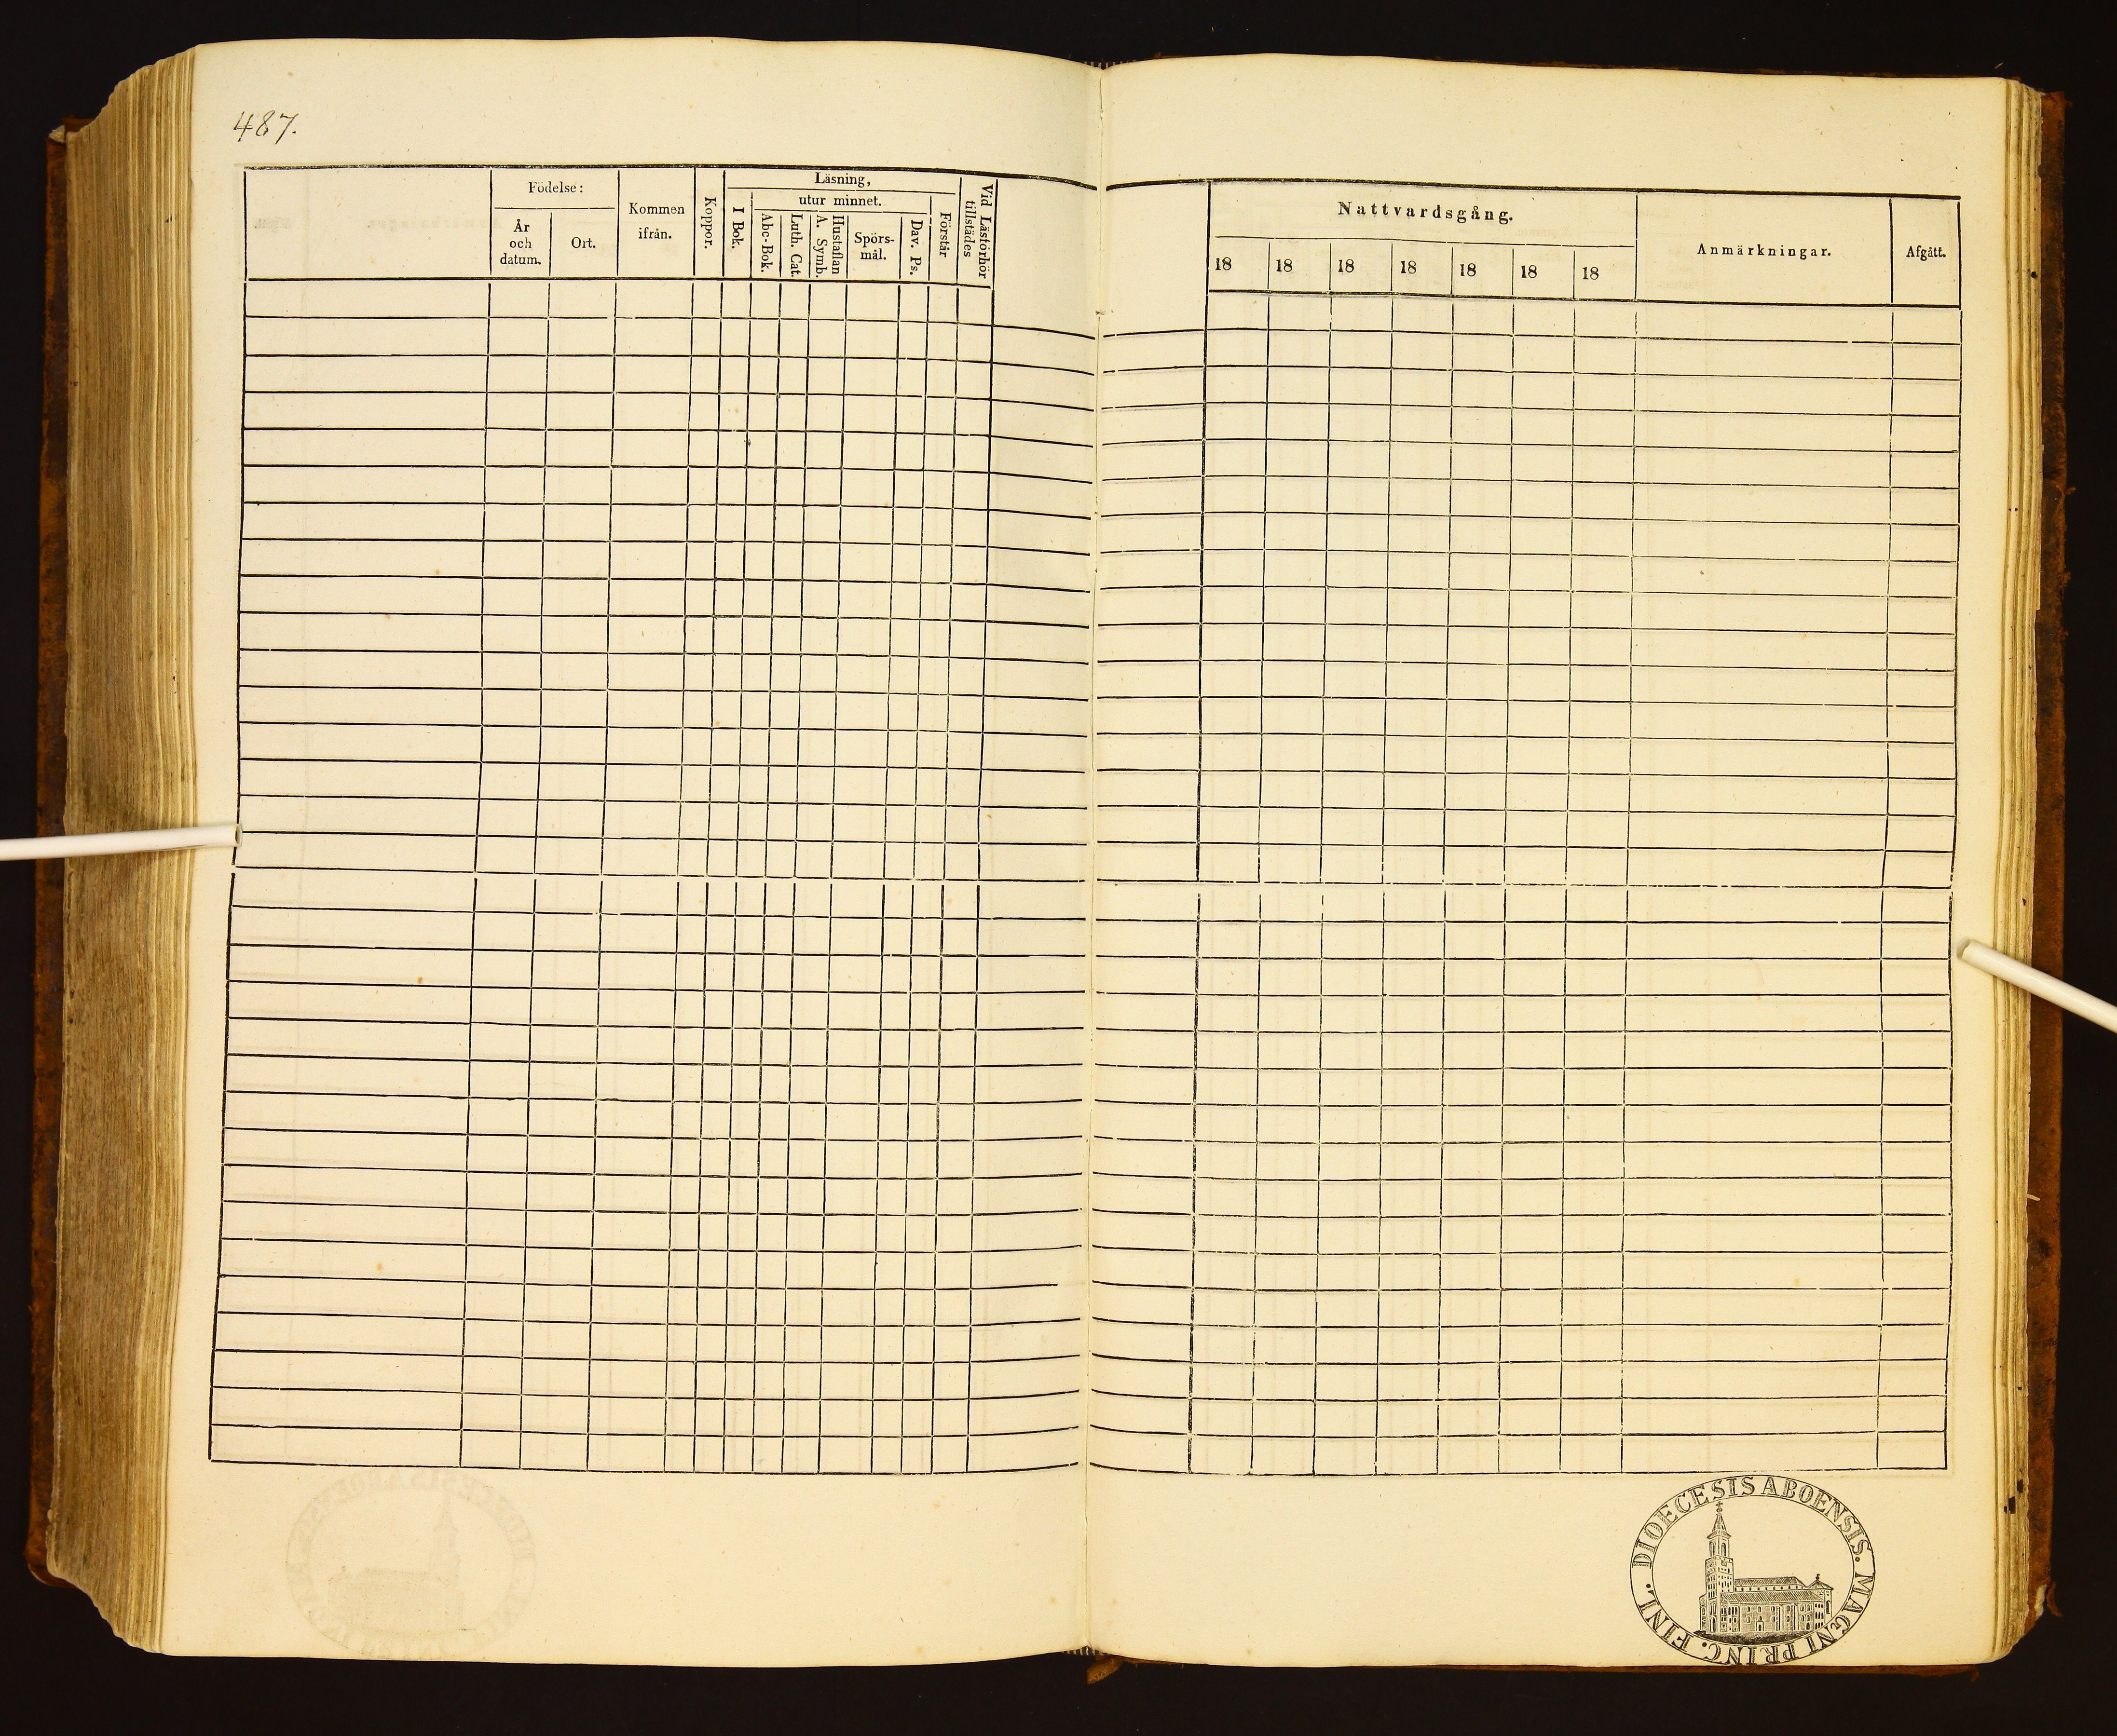 487.
Födelse:
År
och
datum.
Ort.
Kommen
ifrån.
Koppor.
Läsning,
I Bok.
utur minnet.
Abc-Bok.
Luth. Cat.
Hustaflan
A. Symb.
Spörs-
mål.
Dav. Ps.
Förstår
Vid Läsförhör
tillstädes
Nattvardsgång.
18 18 18 18 18 18 18
Anmärkningar.
Afgått.
DIOECESIS ABOENSIS. MAGNI PRINC. FINL.